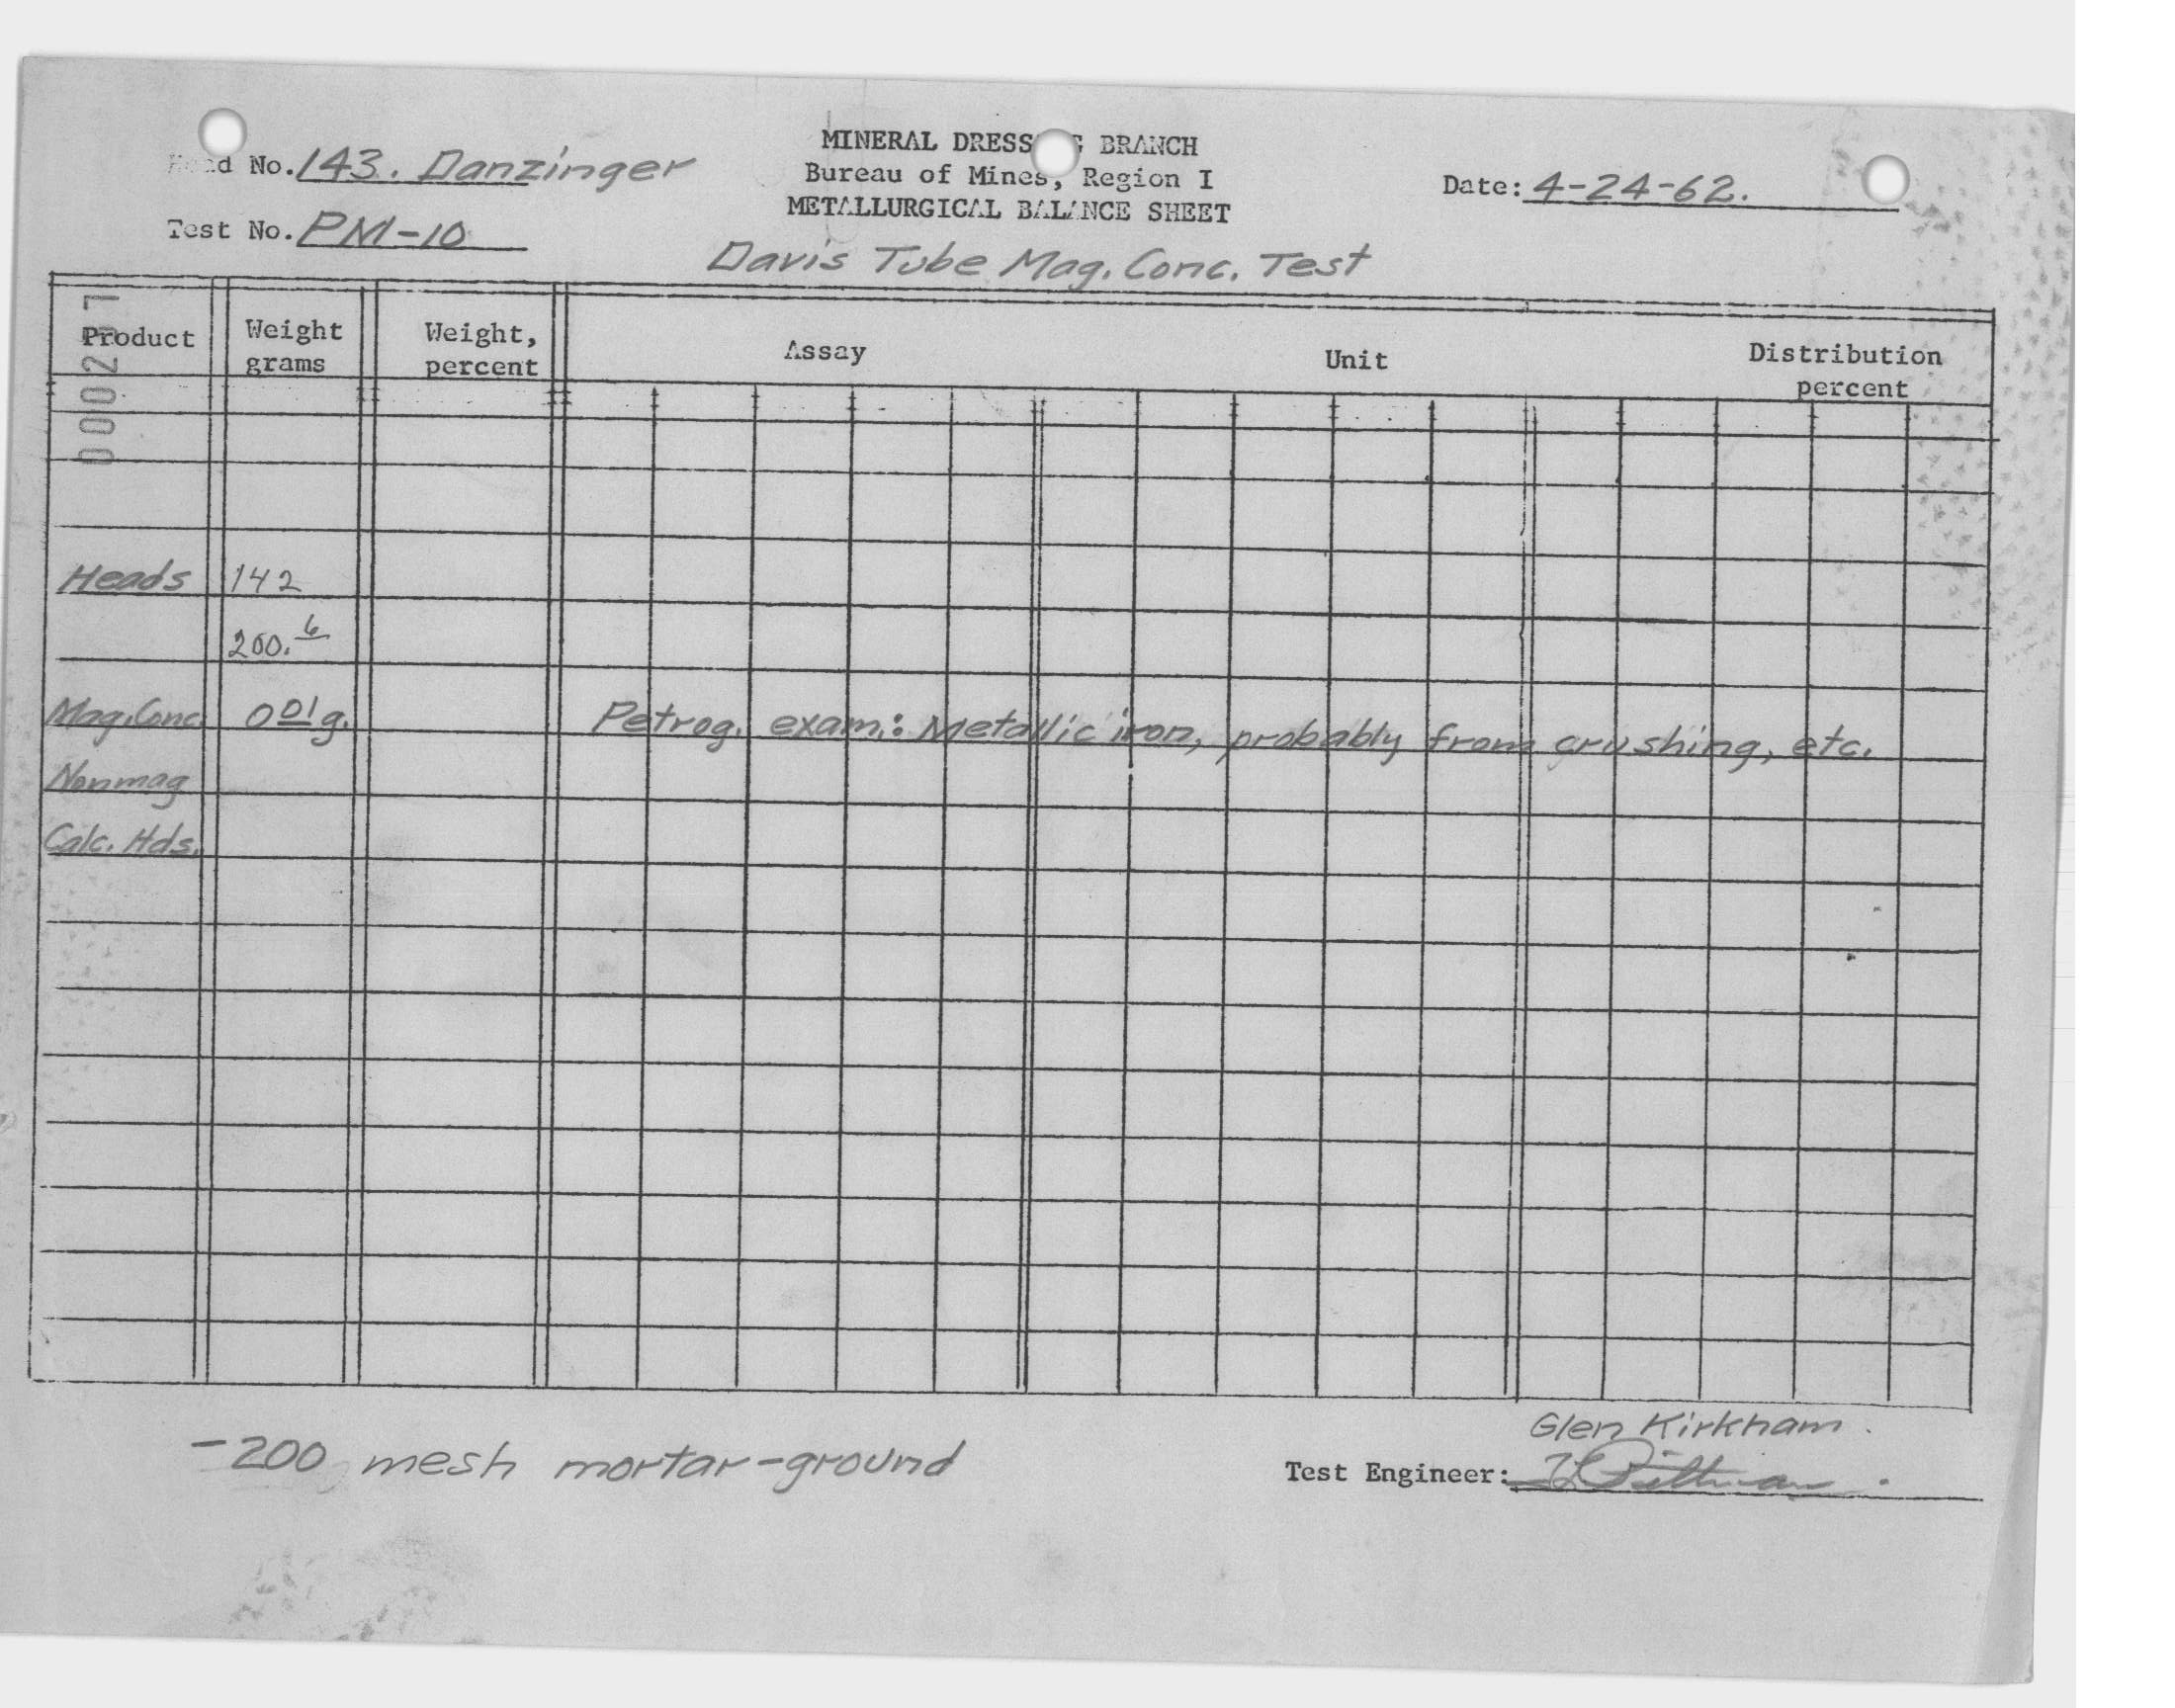 MINERAL DRESS G BRANCH
Head No. 143. Danzinger
Bureau of Mines, Region I
Date: 4-24-62.
METALLURGICAL BALANCE SHEET
Test No. PM-10
Davis Tube Mag. Conc. Test
Product Weight grams Weight, percent Assay Unit Distribution percent
Heads 142
200.6
Mag. Conc. 0.01 g. Petrog. exam.: Metallic iron, probably from crushing, etc.
Nonmag
Calc. Hds.
Glen Kirkham.
-200 mesh mortar-ground
Test Engineer: